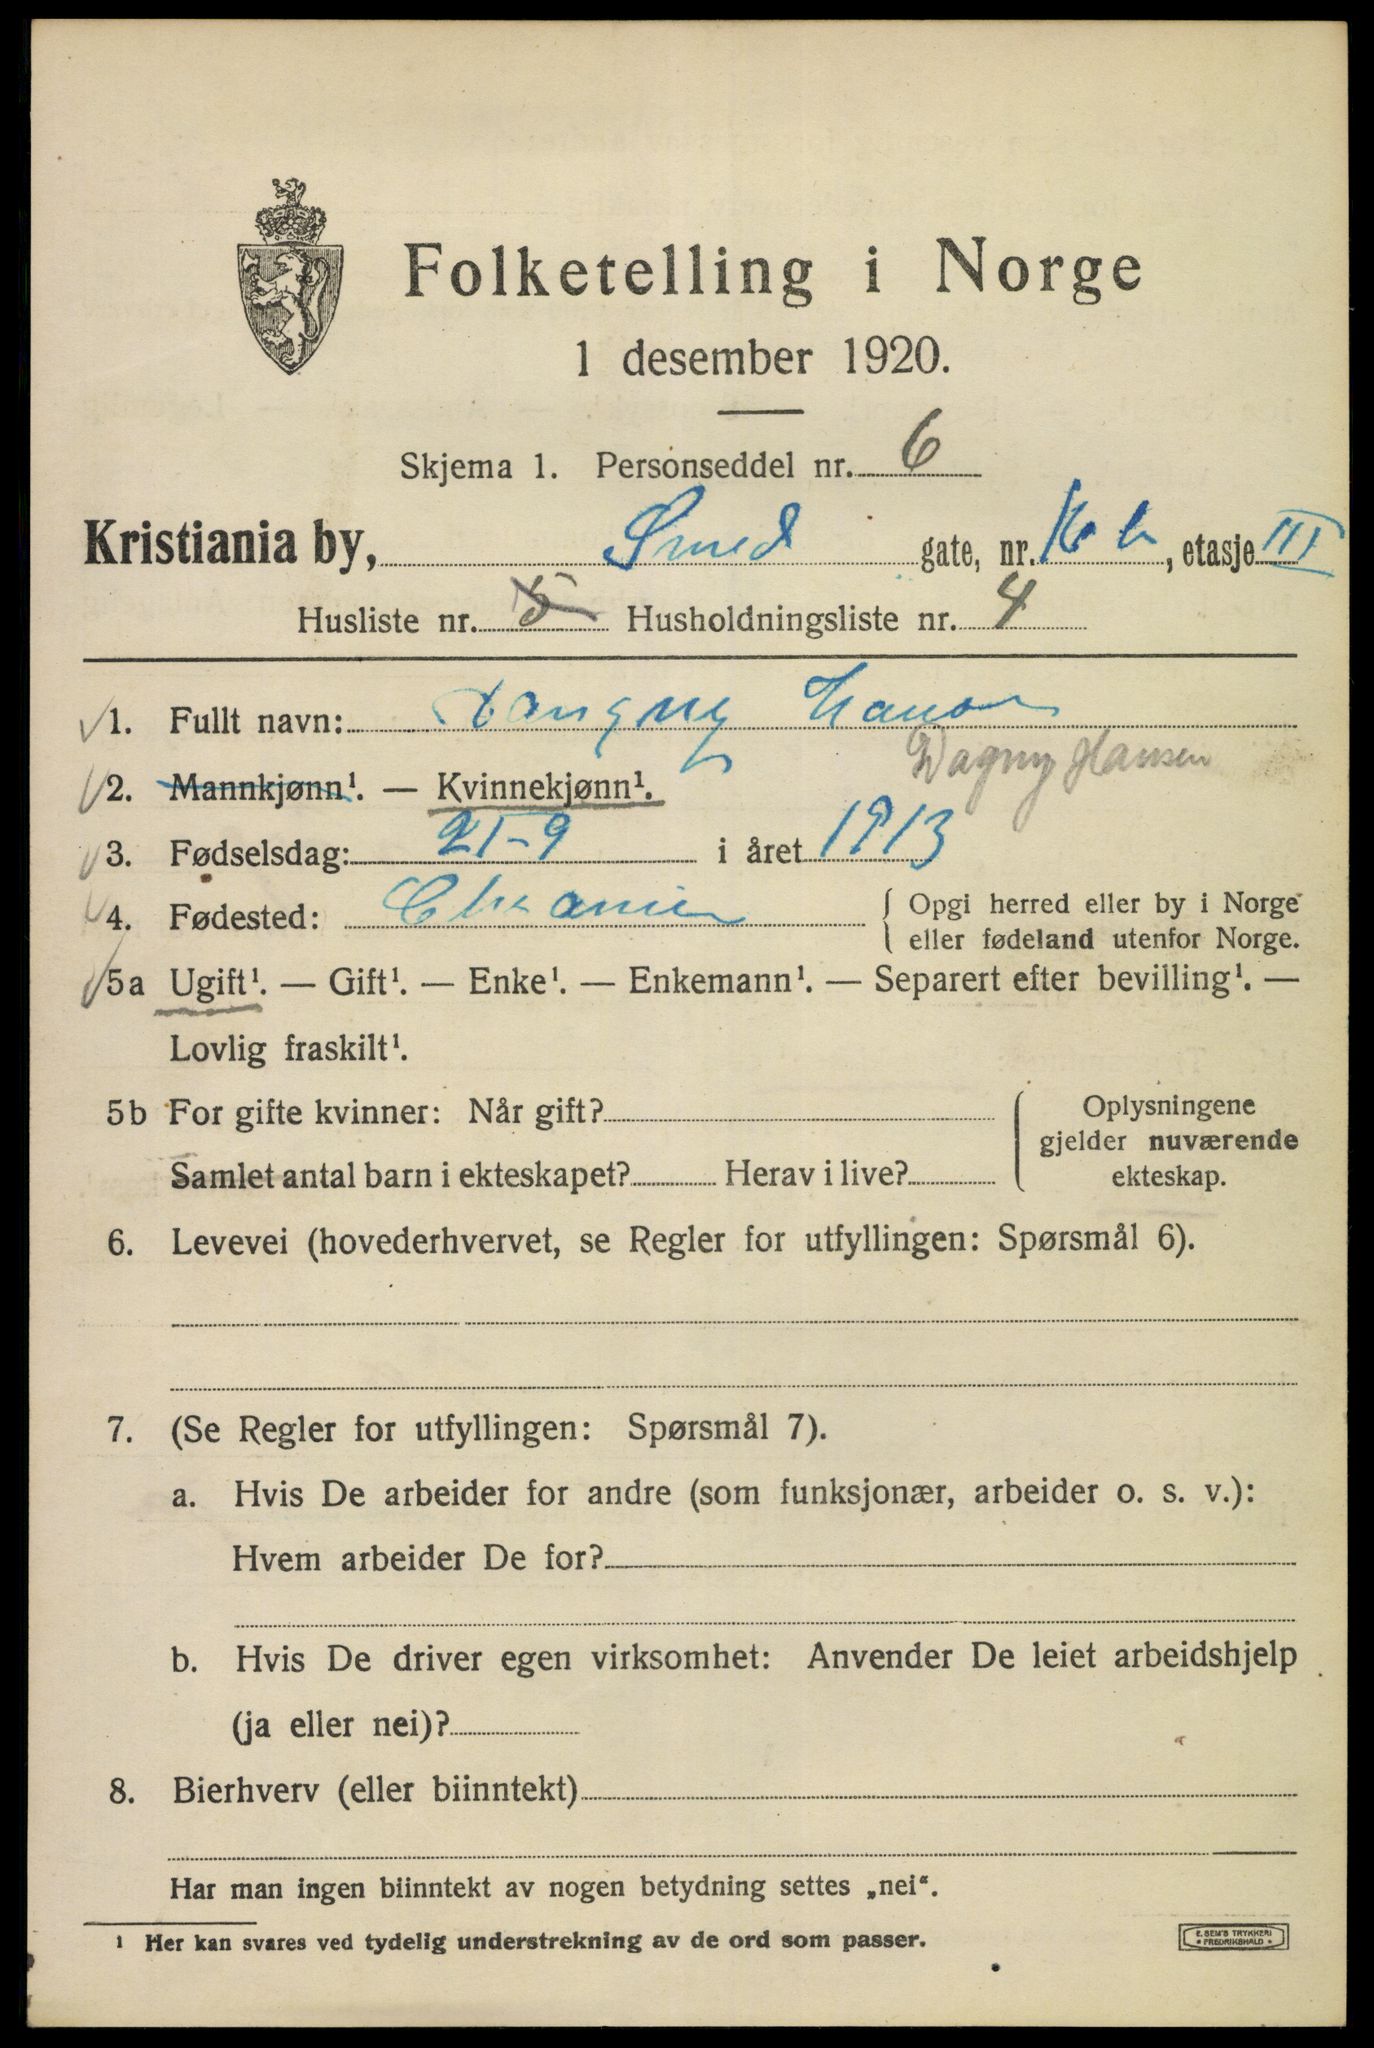 Folketelling i Norge
1 desember 1920.
Skjema 1. Personseddel nr. 6
Kristiania by, Smed gate, nr. 16 b, etasje III
Husliste nr. 5 Husholdningsliste nr. 4
1. Fullt navn: Dangny Hansen
Dagny Hansen
2. Mannkjønn¹. — Kvinnekjønn¹.
3. Fødselsdag: 21-9 i året 1913
4. Fødested: Chr.ania { Opgi herred eller by i Norge
eller fødeland utenfor Norge.
5a Ugift¹. — Gift¹. — Enke¹. — Enkemann¹. — Separert efter bevilling¹. —
Lovlig fraskilt¹.
5b For gifte kvinner: Når gift? { Oplysningene
gjelder nuværende
Samlet antal barn i ekteskapet? Herav i live? ekteskap.
6. Levevei (hovederhvervet, se Regler for utfyllingen: Spørsmål 6).
7. (Se Regler for utfyllingen: Spørsmål 7).
a. Hvis De arbeider for andre (som funksjonær, arbeider o. s. v.):
Hvem arbeider De for?
b. Hvis De driver egen virksomhet: Anvender De leiet arbeidshjelp
(ja eller nei)?
8. Bierhverv (eller biinntekt)
Har man ingen biinntekt av nogen betydning settes „nei“.
¹ Her kan svares ved tydelig understrekning av de ord som passer.
E. SEM'S TRYKKERI
* FREDRIKSHALD *